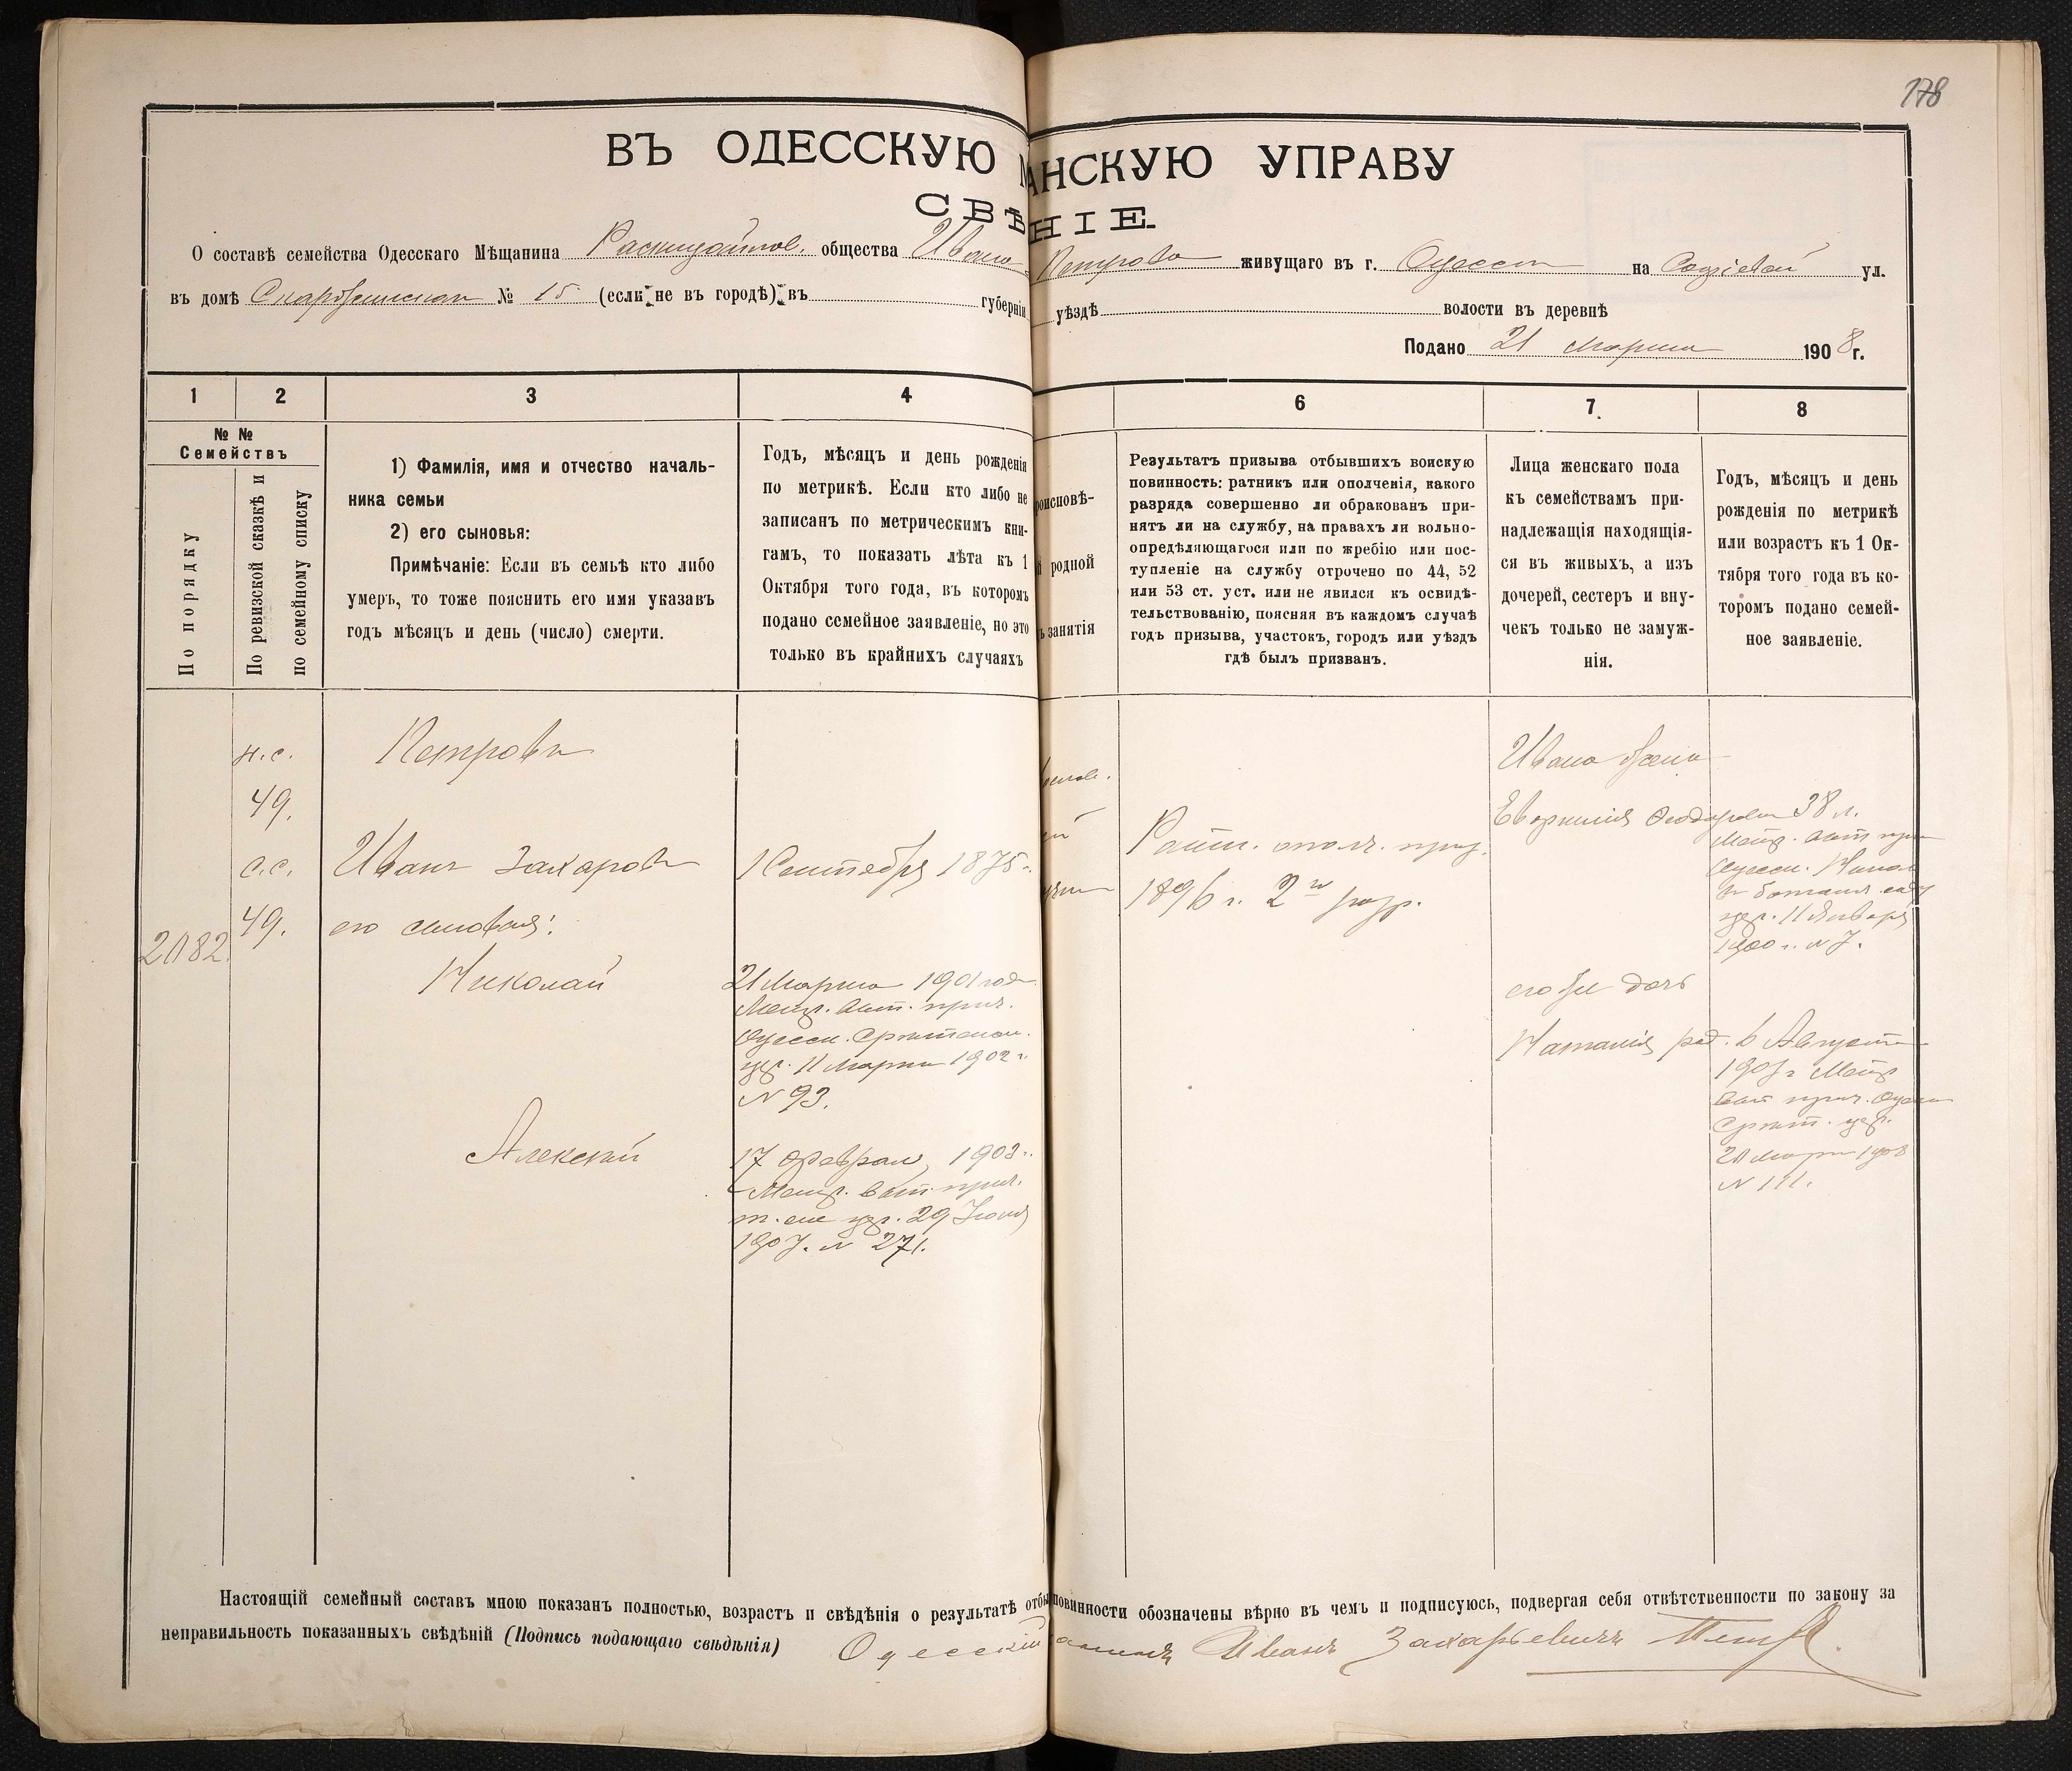 178
ВЪ ОДЕССКУЮ М АНСКУЮ УПРАВУ
СВѢ НІЕ.
О составѣ семейства Одесскаго Мѣщанина общества Ивана Петрова живущаго въ г. Одессѣ на Софіевской ул.
въ домѣ № 15 (если не въ городѣ) въ губерніи уѣздѣ волости въ деревнѣ
Подано 21 Марта 1908 г.
1 2 3 4 6 7. 8
№ №
Семействъ
По порядку
По ревизской сказкѣ и
по семейному списку
1) Фамилія, имя и отчество началь-
ника семьи
2) его сыновья:
Примѣчаніе: Если въ семьѣ кто либо
умеръ, то тоже пояснить его имя указавъ
годъ мѣсяцъ и день (число) смерти.
Годъ, мѣсяцъ и день рожденія
по метрикѣ. Если кто либо не
записанъ по метрическимъ кни-
гамъ, то показать лѣта къ 1
Октября того года, въ которомъ
подано семейное заявленіе, но это
только въ крайнихъ случаяхъ
роисповѣ-
й родной
ъ занятія
Результатъ призыва отбывшихъ воискую
повинность: ратникъ или ополченія, какого
разряда совершенно ли обракованъ при-
нятъ ли на службу, на правахъ ли вольно-
опредѣляющагося или по жребію или пос-
тупленіе на службу отрочено по 44, 52
или 53 ст. уст. или не явился къ освидѣ-
тельствованію, поясняя въ каждомъ случаѣ
годъ призыва, участокъ, городъ или уѣздъ
гдѣ былъ призванъ.
Лица женскаго пола
къ семействамъ при-
надлежащія находящія-
ся въ живыхъ, а изъ
дочерей, сестеръ и вну-
чекъ только не замуж-
нія.
Годъ, мѣсяцъ и день
рожденія по метрикѣ
или возрастъ къ 1 Ок-
тября того года въ ко-
торомъ подано семей-
ное заявленіе.
2082
н.с.
49.
с.с.
49.
Петровъ
Иванъ Захаровъ
его сыновья:
Николай
Алексѣй
1 Сентября 1875 г.
21 Марта 1901 года
Метр. выт. прич.
Одесск. Срѣтенск.
цер. 11 Марта 1902 г.
N 93.
17 Февраля 1903 г.
Метр. выт. прич.
т. же цер. 29 Іюня
1907. N 271.
Ратн. опол. приз.
1896 г. 2го разр.
Ивана жена
Евфимія Феодорова 38 л.
Метр. выт. прич
Одесск. Никол
в ботанич. саду
цер. 11 Января
1900 г. N 7.
его же дочь
Наталія род. 6 Августа
1907 г. Метр
выт. прич. Одесск
Срѣт. цер.
20 Марта 1908
N 111.
Настоящій семейный составъ мною показанъ полностью, возрастъ и свѣдѣнія о результатѣ отбы повинности обозначены вѣрно въ чемъ и подписуюсь, подвергая себя отвѣтственности по закону за
неправильность показанныхъ свѣдѣній (Подпись подающаго свѣдѣнія) Одесскій Иванъ Захарьевичъ